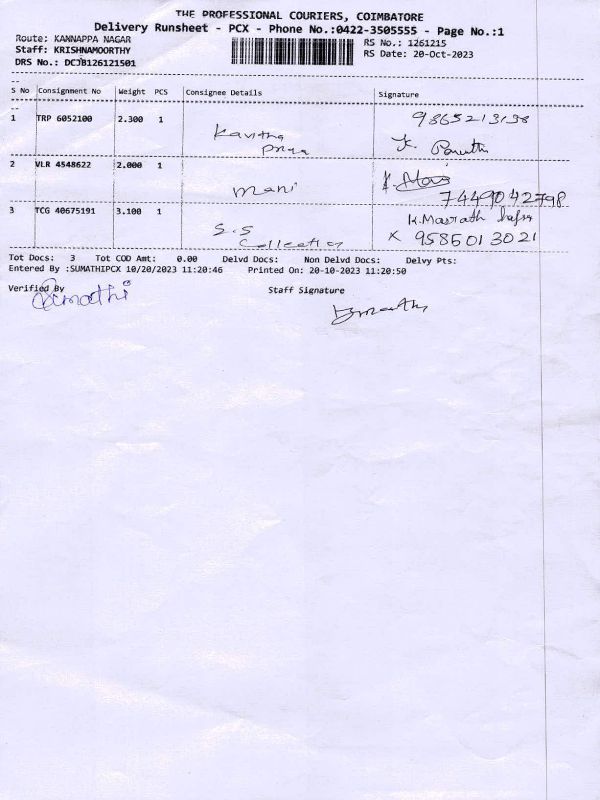 THE PROFESSIONAL COURIERS, COIMBATORE
Delivery Runsheet - PCX - Phone No.:0422-3505555 - Page No.:1
Route: KANNAPPA NAGAR
RS No.: 1261215
Staff: KRISHNAMOORTHY
RS Date: 20-Oct-2023
DRS No.: DCJB126121501
S No Consignment No Weight PCS Consignee Details Signature
1 TRP 6052100 2.300 1
9865213138
Kavitha
Priya
K.
2 VLR 4548622 2.000 1
Mani
7449042798
3 TCG 40675191 3.100 1
K.Masrath
S.S
X 9585013021
Collection
Tot Docs: 3 Tot COD Amt: 0.00 Delvd Docs: Non Delvd Docs: Delvy Pts:
Entered By :SUMATHIPCX 10/20/2023 11:20:46 Printed On: 20-10-2023 11:20:50
Verified By
Staff Signature
Sumathi